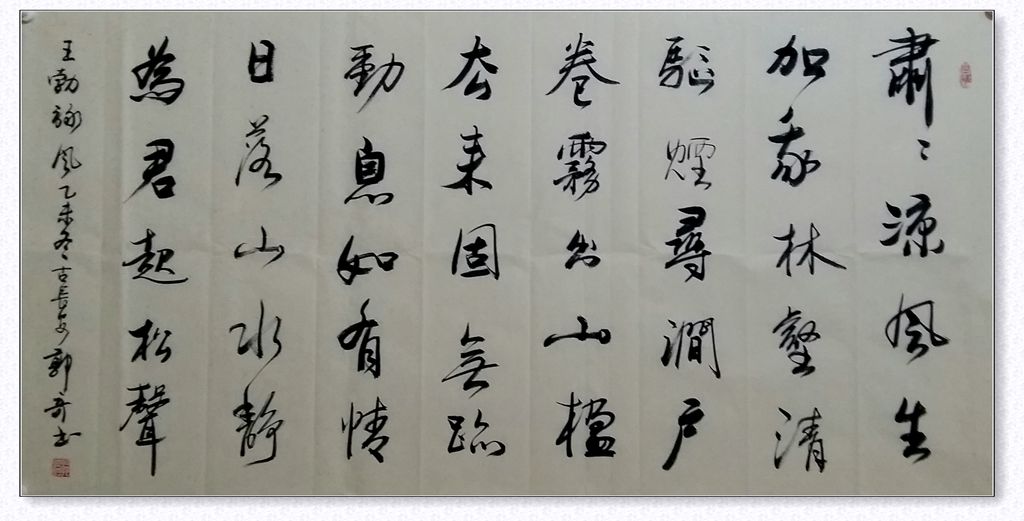 肅〻涼風生
加我林壑清
驅煙尋澗戶
卷霧出山楹
去來固無跡
動息如有情
日落山水靜
為君起松聲
王勃詠風乙未冬古長安郭奇书